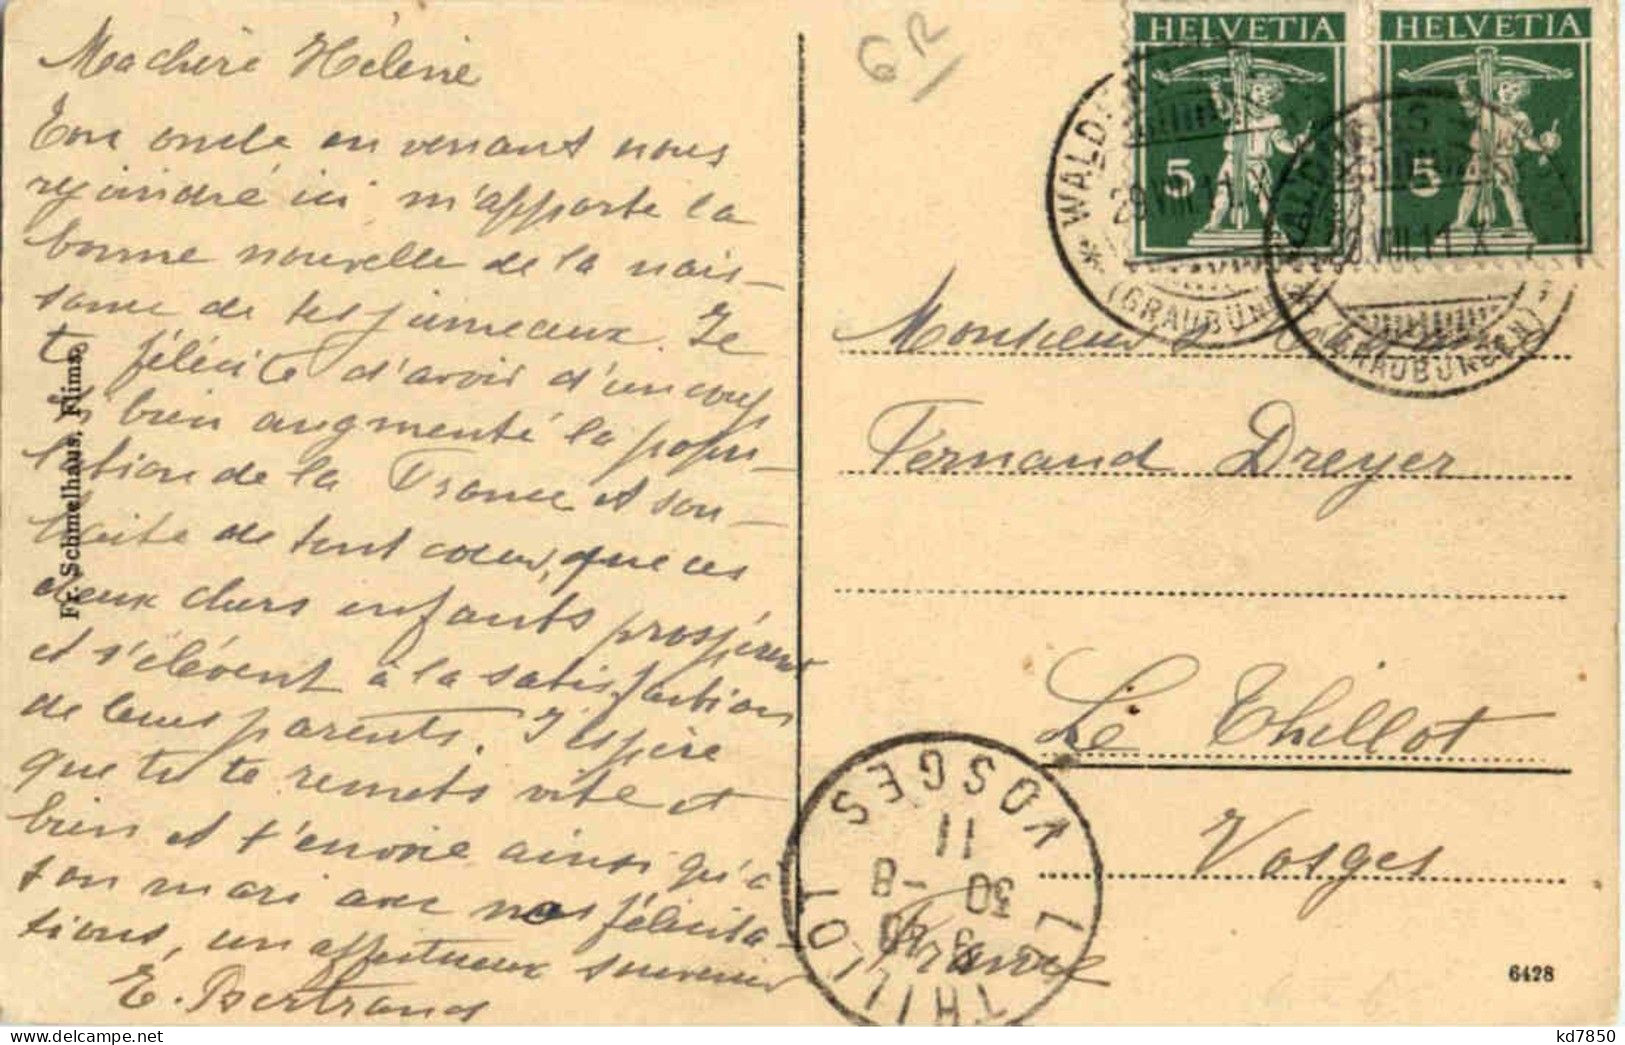 Ma chère Hélène
Ton oncle en venant nous
rejoindre ici m'apporte la
bonne nouvelle de la nais-
sance de tes jumeaux. Je
te félicite d'avoir d'un coup
si bien augmenté la popu-
lation de la France et sou-
haite de tout coeur, que ces
deux chers enfants prospèrent
et s'élèvent à la satisfaction
de leurs parents. J'espère
que tu te remets vite et
bien et t'envoie ainsi qu'à
ton mari avec nos félicita-
tions, un affectueux souvenir
E. Bertrand
Fr. Schmelhaus, Flims.
GR
HELVETIA
5
HELVETIA
5
* WALDH
28 VIII 11 X
(GRAUBÜND
WALDHAUS
28 VIII 11 X
(GRAUBÜNDEN)
Monsieur
Fernand Dreyer
Le Thillot
Vosges
France
LE THILLOT VOSGES
30 -8
11
6428
kd7850